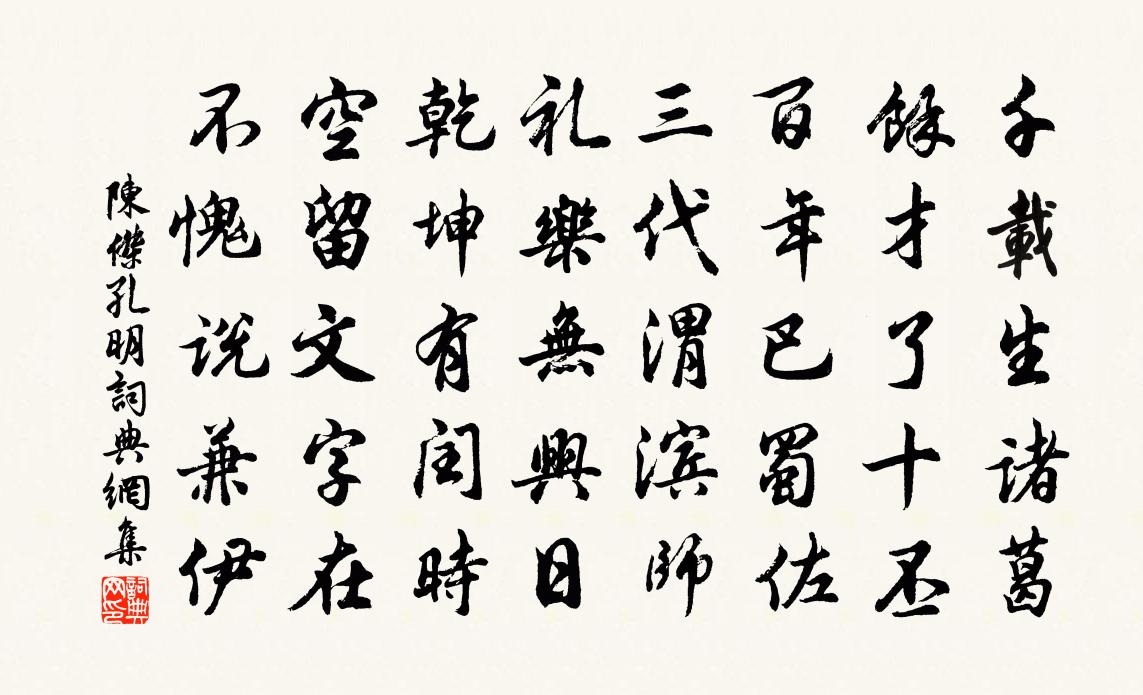 千載生诸葛
餘才了十丕
百年巴蜀佐
三代渭滨師
礼樂無興日
乾坤有闰時
空留文字在
不愧说兼伊
陳傑孔明詞典網集
詞典網印